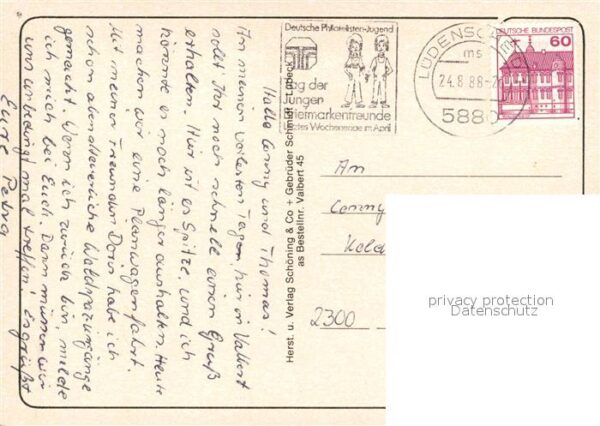 Hallo Conny und Thomas!
An meinen vorletzten Tagen hier in Valbert
sollt Ihr noch schnell einen Gruß
erhalten. Hier ist es Spitze, und ich
könnte es noch länger aushalten. Heute
machen wir eine Planwagenfahrt.
Mit meiner Freundin Doris habe ich
schon abenteuerliche Waldspaziergänge
gemacht. Wenn ich zurück bin, melde
ich mich bei Euch. Dann müssen wir
uns unbedingt mal treffen! Es grüßt
Eure Petra
Herst. u. Verlag Schöning & Co + Gebrüder Schmidt, Lübeck
as Bestellnr. Valbert 45
Deutsche Philatelisten-Jugend
Tag der
Jungen
Briefmarkenfreunde
letztes Wochenende im April
LÜDENSC
ms
24.8.88-2
5880
DEUTSCHE BUNDESPOST
60
An
Conny
2300
privacy protection
Datenschutz